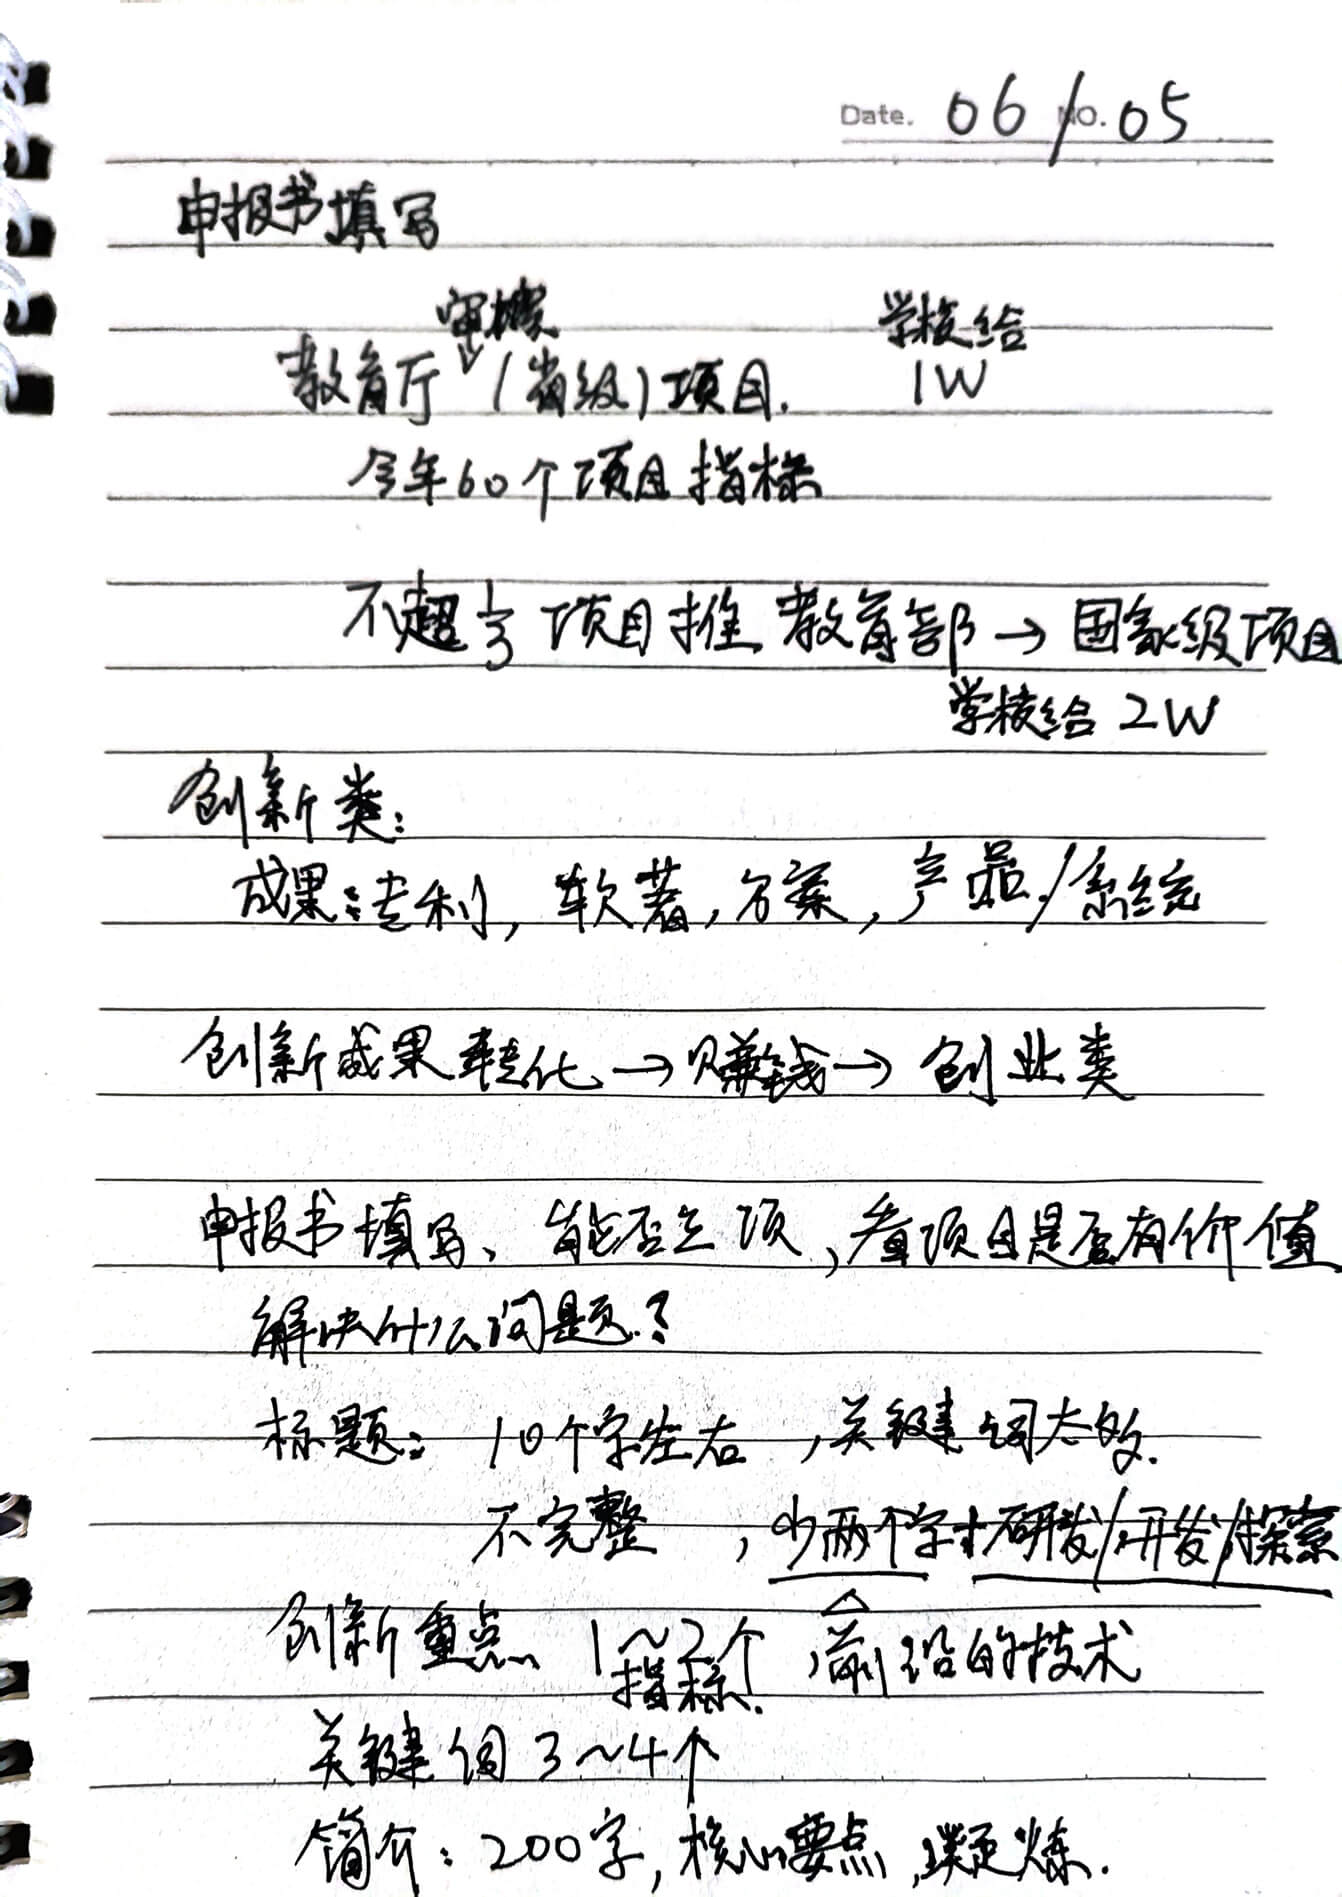 Date. 06 / NO. 05
申报书填写
审核 学校给
教育厅 (省级)项目. 1W
今年60个项目指标
不超1/3 项目推 教育部 → 国家级项目
学校给 2W
创新类:
成果:专利, 软著, 方案, 产品/系统
创新成果转化 → 赚钱 → 创业类
申报书填写、能否立项, 看项目是否有价值
解决什么问题.?
标题: 10个字左右 , 关键词太多.
不完整 , 少两个字 研发/开发/探索
创新重点 1~2个 , 前沿的技术
指标.
关键词 3~4个
简介: 200字, 核心要点,